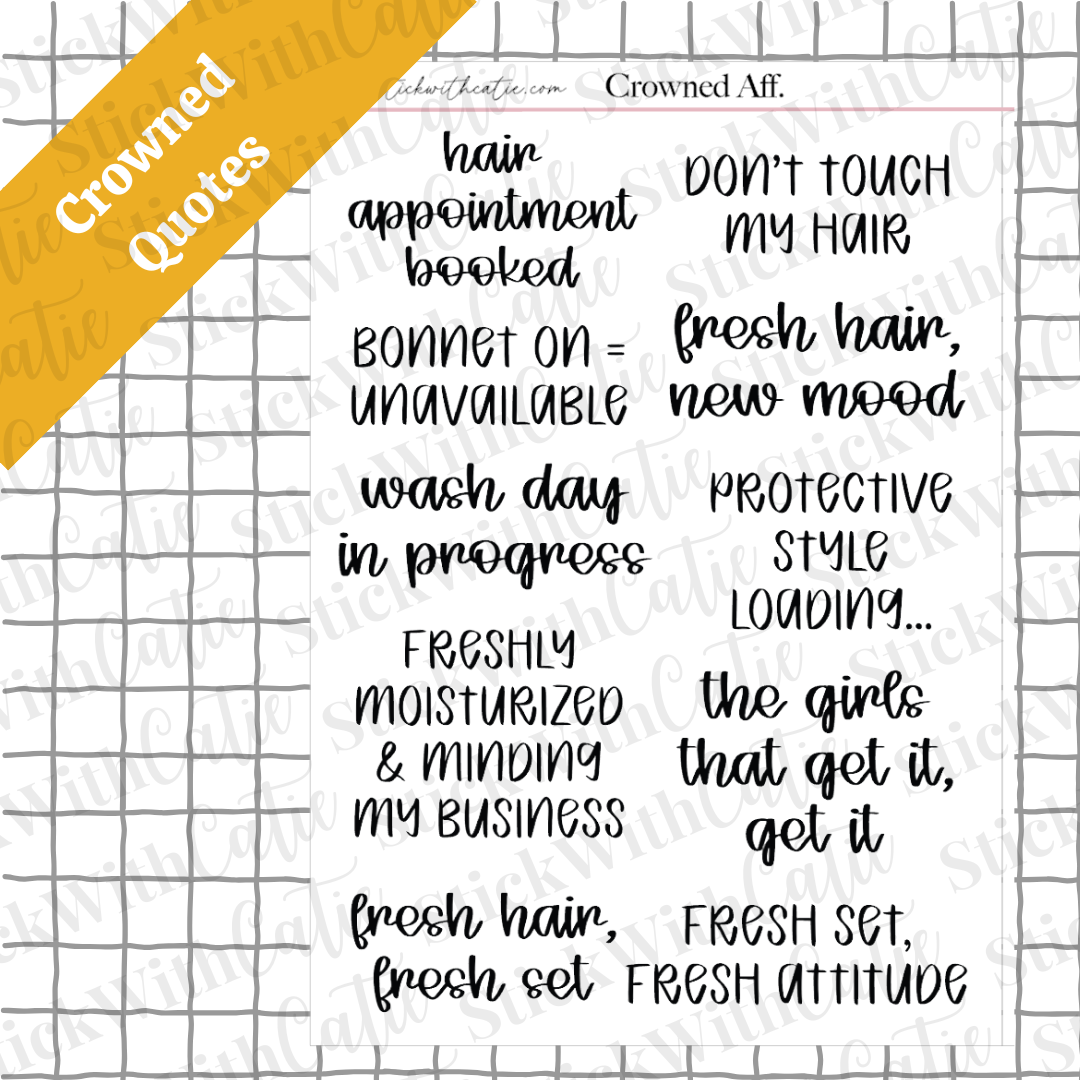 Crowned
Quotes
stickwithcatie.com
Crowned Aff.
hair
appointment
booked
DON'T TOUCH
MY HAIR
BONNET ON =
UNAVAILABLE
fresh hair,
new mood
wash day
in progress
PROTECTIVE
STYLE
LOADING...
FRESHLY
MOISTURIZED
& MINDING
MY BUSINESS
the girls
that get it,
get it
fresh hair,
fresh set
FRESH SET,
FRESH ATTITUDE
StickWithCatie